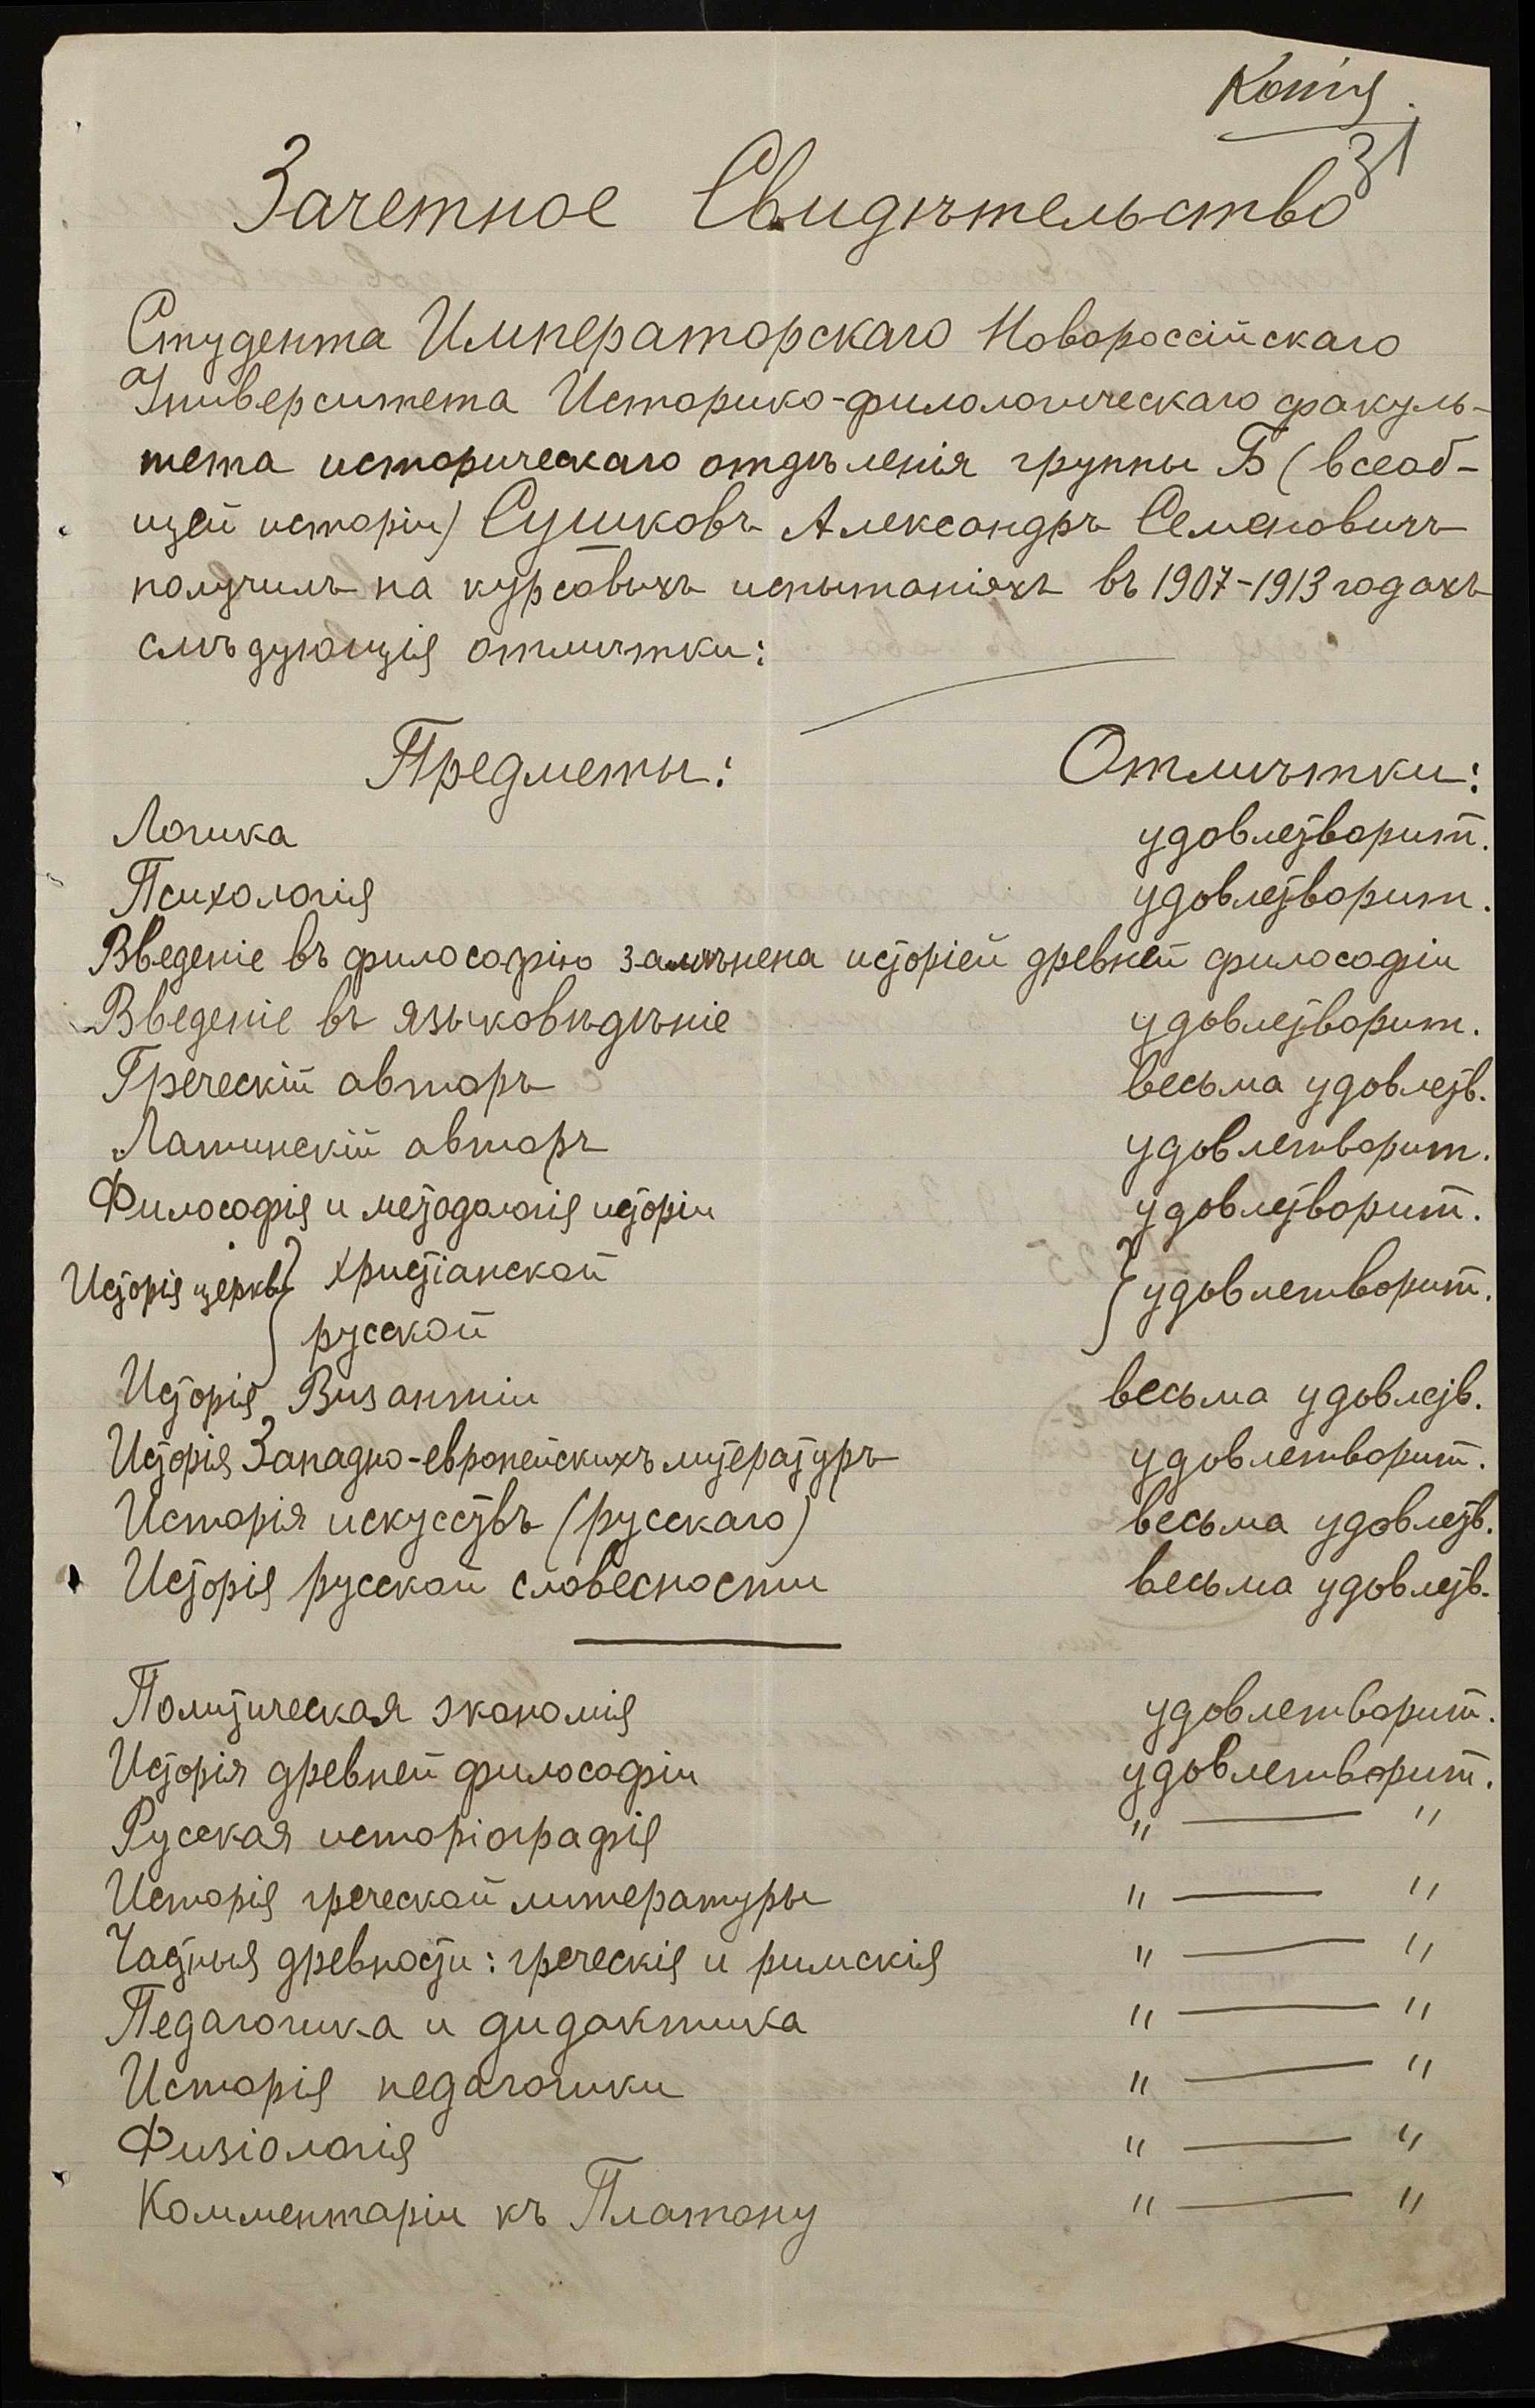 Копія.
31
Зачетное Свидѣтельство
Студента Императорскаго Новороссійскаго
Университета Историко-филологическаго факуль-
тета историческаго отдѣленія группы Б (всеоб-
щей исторіи) Сушковъ Александръ Семеновичъ
получилъ на курсовыхъ испытаніяхъ въ 1907-1913 годахъ
слѣдующія отмѣтки:
Предметы: Отмѣтки:
Логика удовлетворит.
Психологія удовлетворит.
Введеніе въ философію замѣнена исторіей древней философіи
Введеніе въ языковѣдѣніе удовлетворит.
Греческій авторъ весьма удовлетв.
Латинскій авторъ удовлетворит.
Философія и методологія исторіи удовлетворит.
Исторія церкви } христіанской } удовлетворит.
русской
Исторія Византіи весьма удовлетв.
Исторія Западно-европейскихъ литературъ удовлетворит.
Исторія искусствъ (русскаго) весьма удовлетв.
Исторія русской словесности весьма удовлетв.
Политическая экономія удовлетворит.
Исторія древней философіи удовлетворит.
Русская исторіографія " — "
Исторія греческой литературы " — "
Частныя древности: греческія и римскія " — "
Педагогика и дидактика " — "
Исторія педагогики " — "
Физіологія " — "
Комментаріи къ Платону " — "